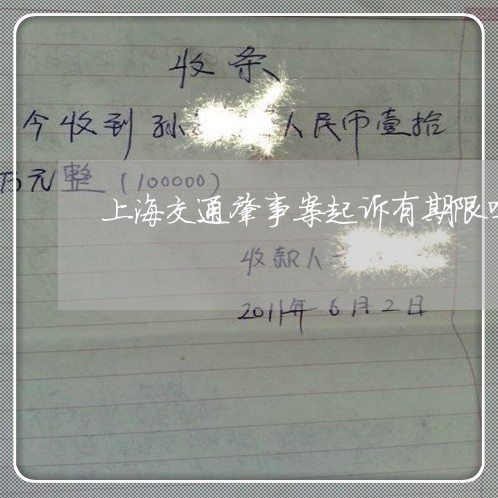 收条
今收到孙 人民币壹拾
万元整(100000)
上海交通肇事案起诉有期限
收款人
2011年6月2日